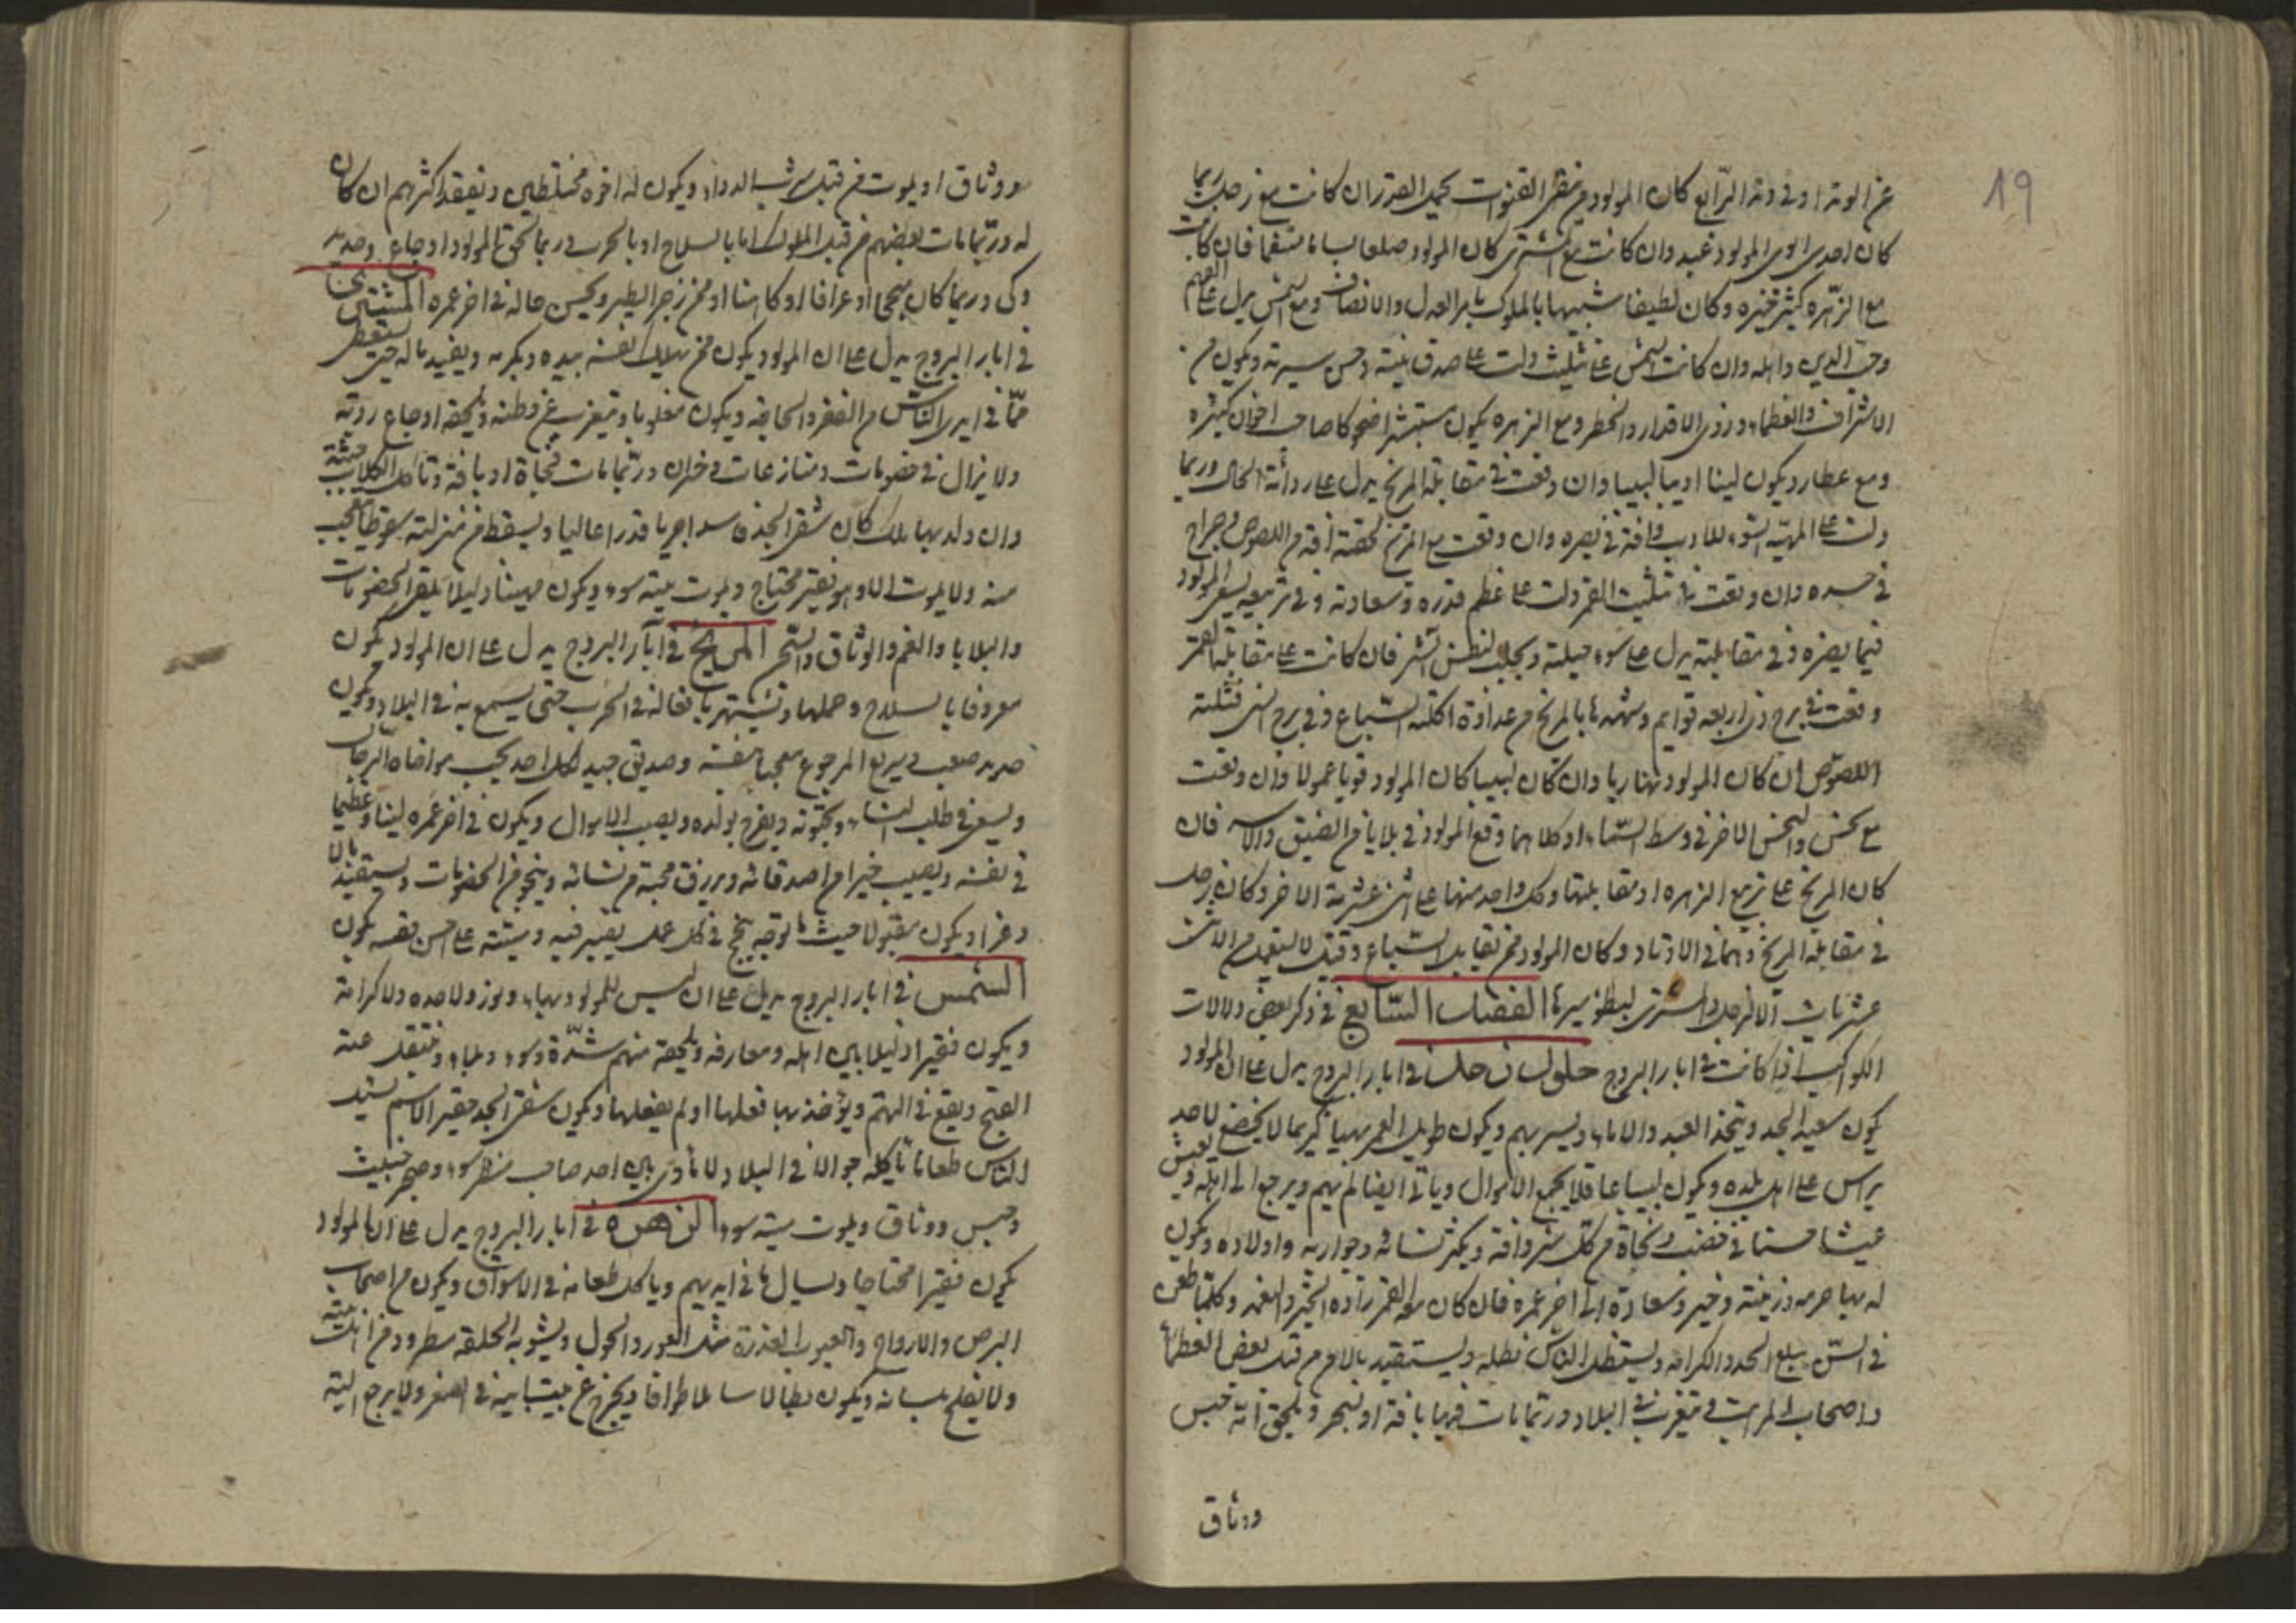 19
عن الوتد او فى وتد الرابع كان المولود من القنوات كميد الصدر ان كانت مع زحل ربما
كان احدى ابوى المولود عبد وان كانت مع المشترى كان المولود فان كانت
مع الزهره كثير خيره وكان لطيفا شبيها بالملوك يامر بالعدل والانصاف ومع الشمس يدل على الفهم
وحب الدين واهله وان كانت الشمس على تثليث دلت على صدق نيته وحسن سيرته ويكون من
الاشراف والعظماء وذوى الاقدار والخطر ومع الزهره يكون مستبشرا ضحوكا صاحب اخوان كثيره
ومع عطارد يكون لينا اديبا لبيبا وان وقعت فى مقابلة المريخ يدل على رداءة الحال وربما
دلت على الميتة السوء للاب وافة فى بصره وان وقعت مع المريخ لحقته افة من اللصوص او جراح
فى جسده وان وقعت فى تثليث القمر دلت على عظم قدره وسعادته وفى تربيعه يسعى المولود
فيما يضره وفى مقابلته يدل على سوء حيلته ويجلب لنفسه الشر فان كانت على مقابلة القمر
وقعت فى برج ذى اربعة قوايم وشهدها بالمريخ من عداوة اكلته السباع وفى برج انسى قتلته
اللصوص ان كان المولود نهاريا وان كان ليليا كان المولود قويا عمولا وان وقعت
مع نحس والنحس الاخر فى وسط السماء او كلاهما وقع المولود فى بلايا من الضيق والاسر فان
كان المريخ على تربيع الزهره او مقابلتها وكل واحد منها على اثنى عشرية الاخر وكان زحل
فى مقابلة المريخ وهما فى الاوتاد وكان المولود ممن يقابل السباع وقيل لا يستعمل من الاثنى
عشريات الا لزحل والمشترى لبطؤ سيرها الفصل السابع فى ذكر بعض دلالات
الكواكب اذا كانت فى ابار البروج حلول زحل فى ابار البروج يدل على ان المولود
يكون سعيد الجد ويتخذ العبيد والاماء ويسر بهم ويكون طويل العمر بهيا كريما لا يخضع لاحد
يراس على اهل بلده ويكون لبيبا عاقلا يجمع الاموال وياتى ويرجع الى اهله ويعيش
عيشا حسنا فى خفض ونجاة من كل شر وافة ويكثر نسائه وجواريه واولاده ويكون
له بها حرمه وزينة وخير وسعادة الى اخر عمره فان كان معه القمر زاده الخير والنعمة وكلما طعن
فى السن يبلغ الحمد والكرامة ويستظل الناس بظله ويستفيد مالا من قبل بعض العظماء
واصحاب المراتب ويتغرب فى البلاد وربما مات فيها بافة او ببحر ويلحق انه حبس
ووثاق
ووثاق او يموت من قبل شرب الدواء ويكون له اخوه مختلطين ويفقد اكثرهم ان كان
له وربما مات بعضهم من قبل الملوك اما بالسلاح او بالحرب وربما لحق المولود اوجاع وحديد
وكى وربما كان منجما او عرافا او كاهنا او ممن زجر الطير ويحسن حاله فى اخر عمره المشترى
فى ابار البروج يدل على ان المولود يكون ممن يهلك نفسه بيده وبكره ويفيد ماله حتى يستعطى
مما فى ايدى الناس من الفقر والحاجة ويكون مغلوبا ويتغرب عن وطنه ويلحقه اوجاع رديه
ولا يزال فى خصومات ومنازعات وخسران وربما مات فجاة او بافة وتاكل الكلاب جثته
وان ولد بها ملك كان شقى الجد فاسدا جريا قدرا عاليا ويسقط من منزلته سقوطا يتعجب
منه ولا يموت الا وهو فقير محتاج ويموت ميتة سوء ويكون مهينا ذليلا يلقى الخصومات
والبلايا والغم والوثاق والسحر المريخ فى آبار البروج يدل على ان المولود يكون
معروفا بالسلاح وحملها وتشتهر بافعاله فى الحرب حتى يسمع به فى البلاد ويكون
صعب سريع الرجوع معجبا بنفسه وصديق جيد لكل احد يحب مواخاة الرجال
ويسعى فى طلب النساء ويحبونه ويفرح بولده ويصيب الاموال ويكون فى اخر عمره لينا وعظيما
فى نفسه ويصيب خيرا من اصدقائه ويرزق محبة من نسائه وينجو من الخصومات ويستفيد مالا
وعزا ويكون مقبولا حيث ما توجه ينجح فى كل عمل يصير فيه وميتته على احسن نفسه يكون
الشمس فى ابار البروج يدل على ان ليس للمولود بهاء ونور ولا حده ولا كرامة
ويكون فقيرا ذليلا بين اهله ومعارفه ويلحقه منهم شدة وسوء وبلاء وينتقل عنه
القبح ويقع فى التهم ويؤخذ بها فعلها او لم يفعلها ويكون شقى الجد حقير الاسم يسئل
الناس طعاما ياكله جوالا فى البلاد لا ماوى بين احد صاحب منظر سوء وضجر خبيث
وحبس ووثاق ويموت ميتة سوء الزهره فى ابار البروج يدل على ان المولود
يكون فقيرا محتاجا ويسال ما فى ايديهم وياكل طعامه فى الاسواق ويكون من اصحاب
البرص والارواح والعيوب القذرة مثل العور والحول ويشوبه الخلقة مطرود من اهل بيته
ولا يفلح بلسانه ويكون بطالا سائلا طوافا ويخرج عن بيت ابيه فى الصغر ولا يرجع اليه